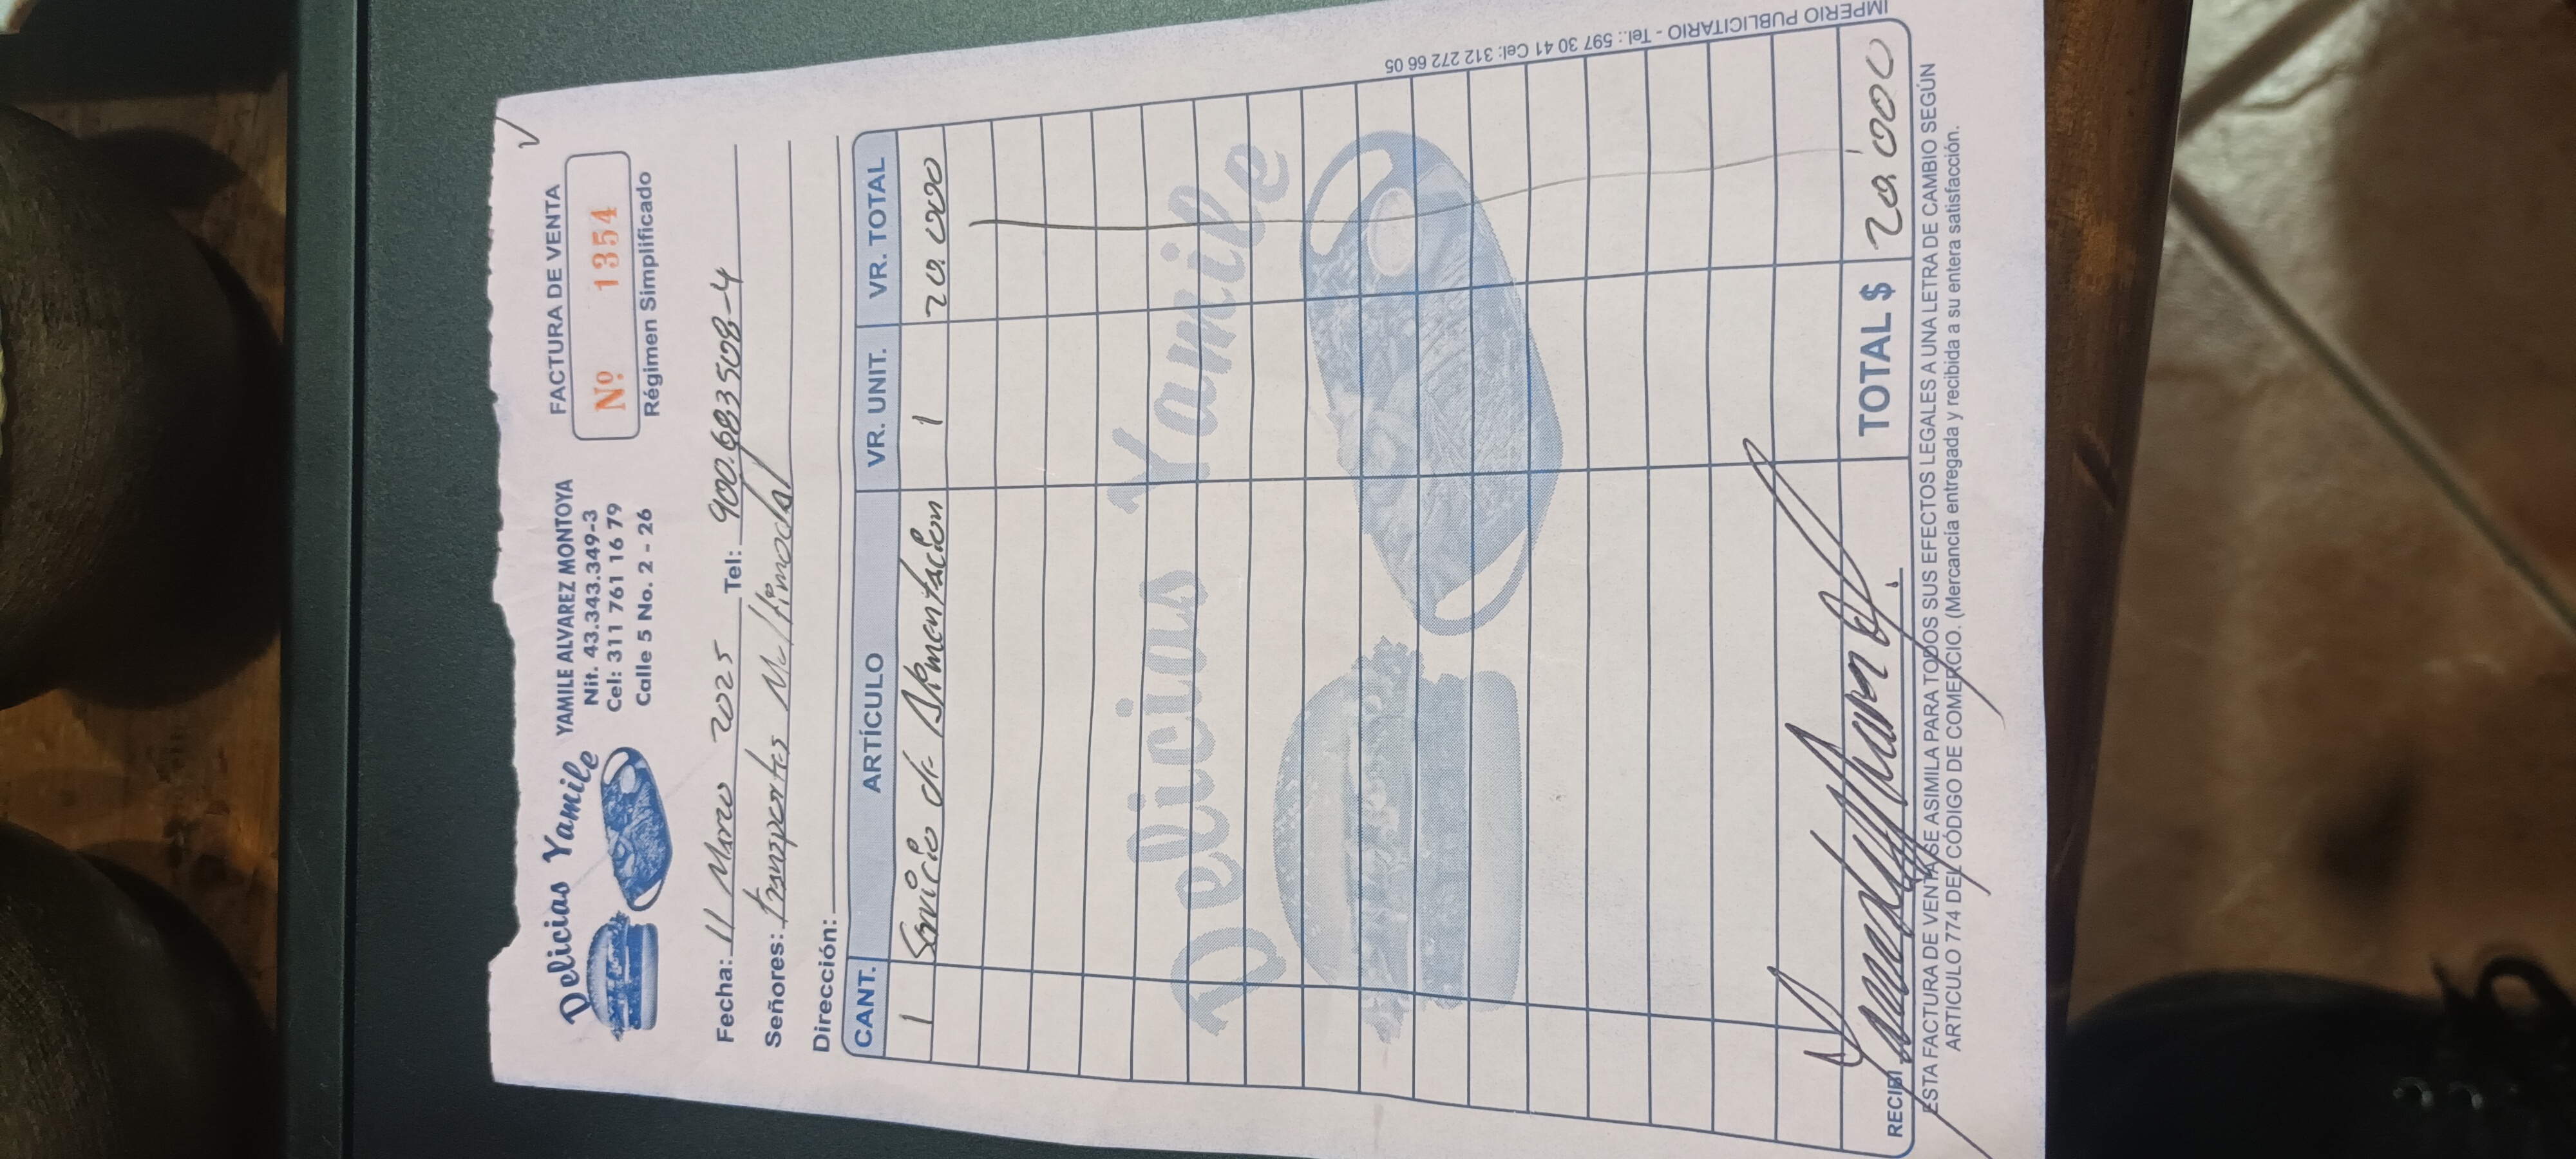 Delicias Yamile
YAMILE ALVAREZ MONTOYA
Nit. 43.343.349-3
Cel: 311 761 16 79
Calle 5 No. 2 - 26
FACTURA DE VENTA
Nº 1354
Régimen Simplificado
Fecha: 11 Marzo 2025 Tel: 900.683508-4
Señores: Transportes Multimodal
Dirección:
CANT. ARTÍCULO VR. UNIT. VR. TOTAL
1 Servicio de Alimentacion 1 20.000
Delicias Yamile
RECIBÍ TOTAL $ 20.000
ESTA FACTURA DE VENTA SE ASIMILA PARA TODOS SUS EFECTOS LEGALES A UNA LETRA DE CAMBIO SEGÚN
ARTICULO 774 DEL CÓDIGO DE COMERCIO. (Mercancia entregada y recibida a su entera satisfacción.
IMPERIO PUBLICITARIO - Tel.: 597 30 41 Cel: 312 272 66 05